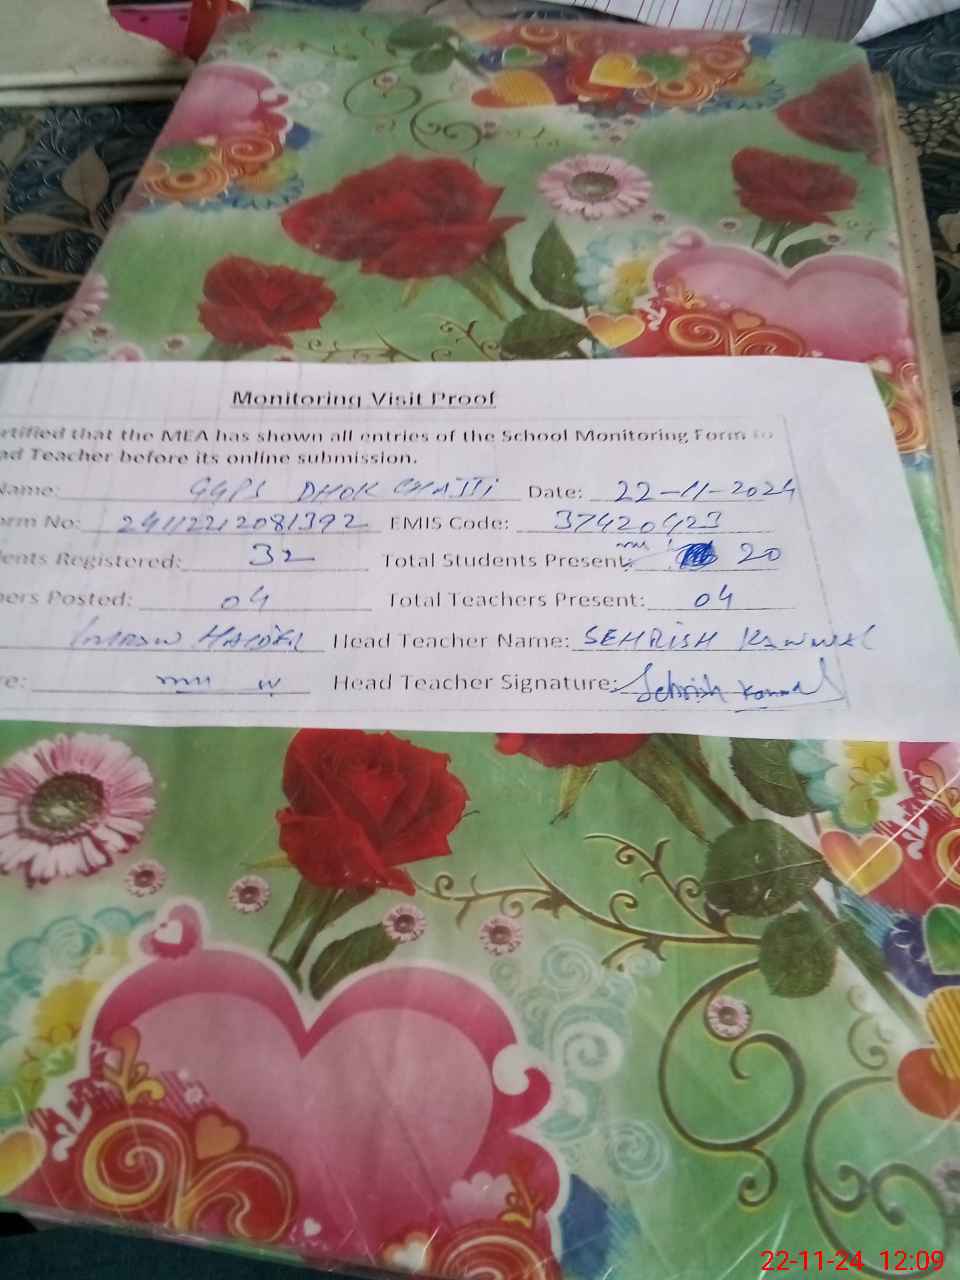 Monitoring Visit Proof
rtified that the MEA has shown all entries of the School Monitoring Form to
ad Teacher before its online submission.
Name: GGPS DHOK CHATTI Date: 22-11-2024
orm No: 24112212081392 EMIS Code: 37420423
ents Registered: 32 Total Students Present: 20
hers Posted: 04 Total Teachers Present: 04
Head Teacher Name: SEHRISH KANWAL
re: Head Teacher Signature: Sehrish Kanwal
22-11-24 12:09